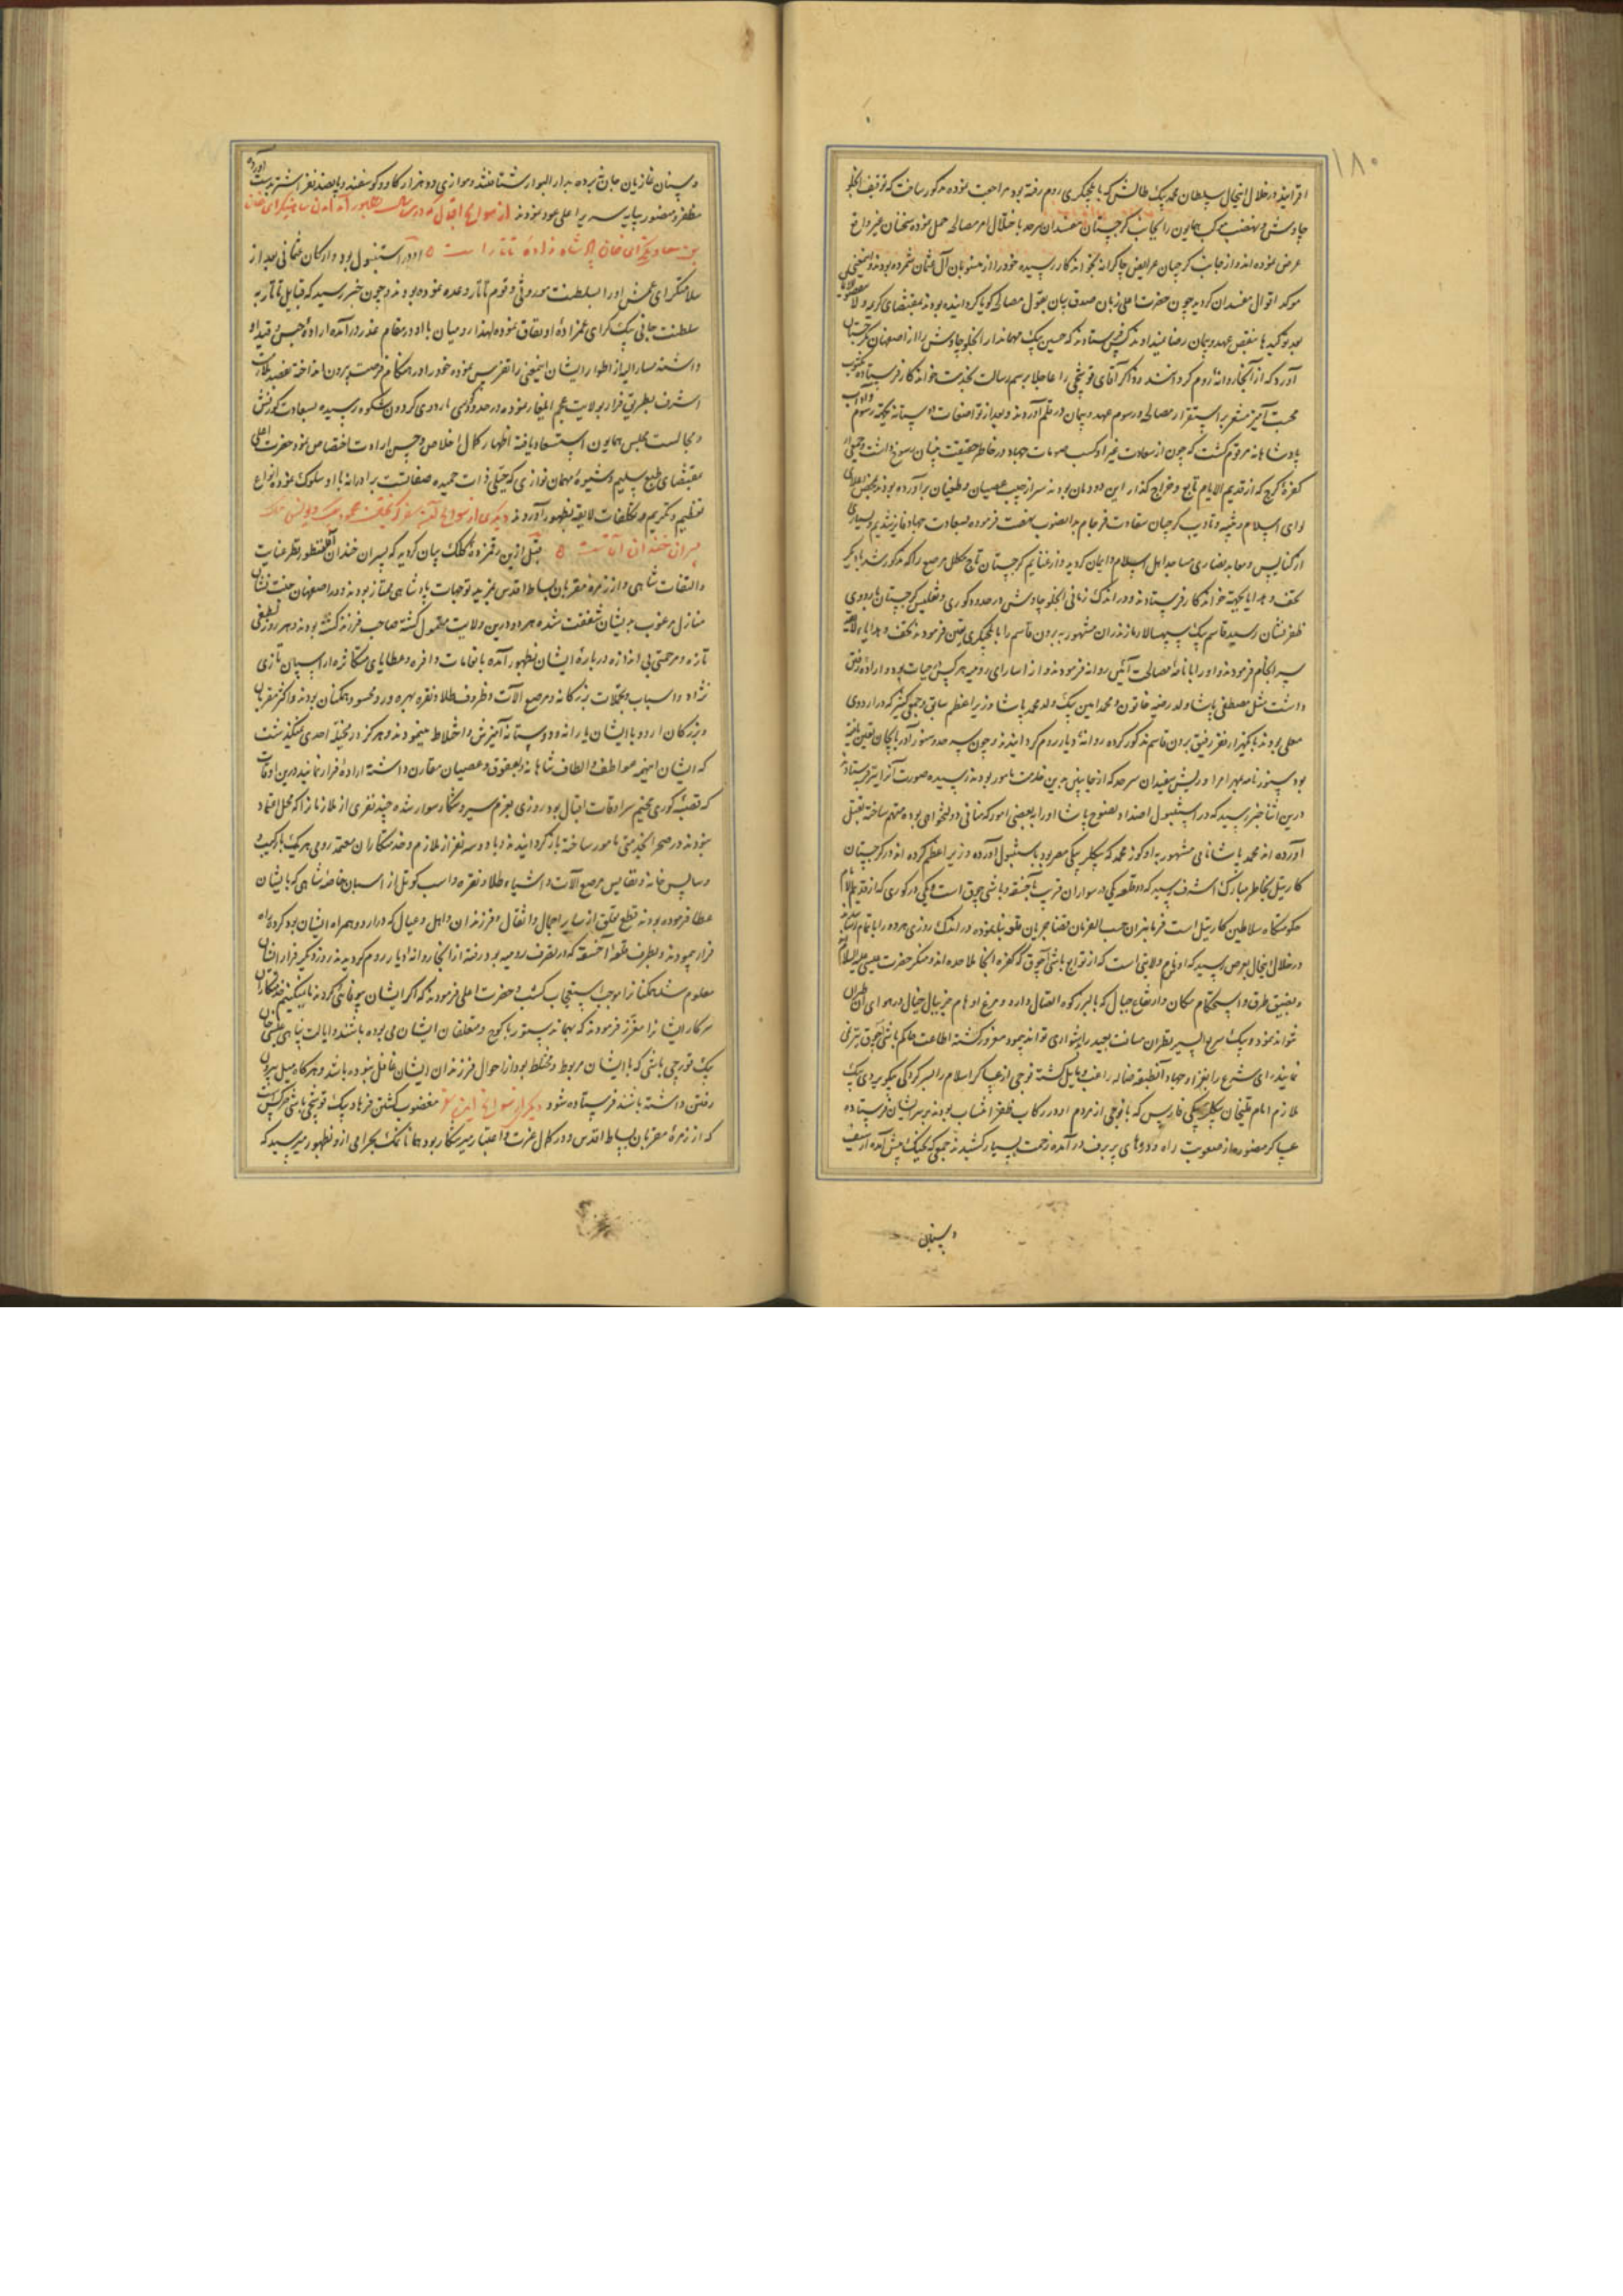 ۱۸۰
افزایند در خلال اینحال سلطان محمد بیک طالش که بایلچیگری روم رفته بود مراجعت نموده مذکور ساخت که توقیف انجلو
چاوش و نهضت موکب همایون را بجانب گرجستان مفسدان سرحد باختلال امر مصالحه حمل نموده سخنان غیر واقع
عرض نموده اند و از جانب گرجیان عرایض چاکرانه بخواندکار رسیده خود را از منسوبان آل عثمان شمرده بودند و اینمعنی
موکد اقوال مفسدان گردید چون حضرت اعلی زبان صدق بیان بقول مصالحه گویا گردانیده بودند بمقتضای کریمه ولا تنقضوا
بعد توکیدها بنقض عهد و پیمان رضا نمیدادند کس فرستادند که حسین بیک مهماندار انجلو چاوش را از اصفهان بگرجستان
آورد که از آنجا روانه روم گردانند و ذاکر آقای قوشچی را عاجلا برسم رسالت بخدمت خواندکار فرستاده مکتوب
محبت آمیز مشعر بر استقرار مصالحه و رسوم عهد و پیمان در قلم آوردند و بعد از تواضعات دوستانه بحکیته رسوم و آداب
پادشاهانه مرقوم گشت که چون از سعادت غزا و کسب مثوبات جهاد در خاطر حقیقت بنیان رسوخ داشت و جمعی از
کفره گرج که از قدیم الایام تابع و خراج گذار این دودمان بودند سر از جیب عصیان و طغیان برآورده بودند محض اعلای
لوای اسلام و تنبیه و تادیب گرجیان شقاوت فرجام بدانصوب نهضت فرموده بسعادت جهاد فایز شدیم و بسیاری
از کنایس و معابد نصاری مساجد اهل اسلام و ایمان گردید و از غنایم گرجستان تاج مکلل مرصع را که مذکور شد با دیگر
تحف و هدایا بجهته خواندکار فرستادند و در اندک زمانی انجلو چاوش در حدود گوری و تفلیس گرجستان باردوی
ظفر نشان رسید قاسم بیک سپهسالار مازندران مشهور به برون قاسم را بایلچیگری تعین فرمودند تحف و هدایاء لایقه
سرانجام فرمودند و او را با نامه مصالحت آئین روانه فرمودند و از اسارای رومیه هر کس در حیات بود و اراده رفتن
داشت مثل مصطفی پاشا ولد رضیه خاتون و محمد امین بیک ولد محمد پاشا وزیر اعظم سابق و جمعی کثیر که در اردوی
معلی بودند با یکهزار نفر رفیق برون قاسم مذکور کرده روانه دیار روم گردانیدند و چون سرحد و سنور آذربایجان تعین یافته
بود سنورنامه بمهر امرا و ریش سفیدان سرحد که از جانبین بدین خدمت مامور بودند رسیده صورت آنرا نیز فرستادند
درین اثنا خبر رسید که در استنبول اضداد نصوح پاشا او را ببعضی امور که منافی دولتخواهی بوده متهم ساخته بقتل
آورده اند محمد پاشا نامی مشهور به اوکوز محمد که بیکلربیکی مصر بود باستنبول آورده وزیر اعظم کرده اند در گرجستان
کارتیل بخاطر مبارک اشرف رسید که دو قلعه یکی در سواران قریب بآخسقه و باشی چوق است و یکی در گوری که از قدیم الایام
حکومتگاه سلاطین کارتیل است فرمانبران حسب الفرمان قضا جریان قلعه بنا نموده در اندک روزی هر دو را باتمام رسانند
در خلال اینحال بعرض رسید که اوغرم ولایتی است که از توابع باشی آچوق که کفره آنجا ملاحده اند و منکر حضرت عیسی علیه السلام
و بضیق طرق و استحکام مکان و ارتفاع جبال که بالبرز کوه اتصال دارد و مرغ اوهام جز ببال خیال در هوای آن طیران
نتواند نمود و پیک سریع السیر نظر آن مسافت بعید را بدشواری تواند پیمود مغرور گشته اطاعت حاکم باشی آچوق نیز نمی
نمایند رای شرع آرا بغزا و جهاد آنطبقه ضاله راغب و مایل گشته فوجی از عساکر اسلام را بسرکردگی بیکویردی بیک
ملازم امام قلیخان بیکلربیکی فارس که با فوجی از مردم او در رکاب ظفر انتساب بودند بر سر ایشان فرستاده
عساکر منصوره از صعوبت راه و درهای پر برف در آمده زحمت بسیار کشیدند جمعی که بجنگ پیش آمدند از سیف
و سنان
و سنان غازیان جان نبرده بدار البوار شتافتند و موازی دو هزار گاو و گوسفند و پانصد نفر اشتر بدست آورده
مظفر و منصور بپایه سریر اعلی عود نمودند از سوانح اقبال که در این سال بظهور آمد آمدن شاهین کرای خان
بن سعادت کرای خان پادشاه زاده تاتار است او در استنبول بود و ارکان عثمانی بعد از
سلامتکرای عمش او را بسلطنت موروثی و قوم تاتار وعده نموده بودند و چون خبر رسید که قبایل تاتار به
سلطنت جانی بیک کرای عمزاده او اتفاق نموده لهذا رومیان با او در مقام غدر درآمده اراده حبس و قید او
داشتند مشارالیه از اطوار ایشان اینمعنی را تفرس نموده خود را در هنگام فرصت بیرون انداخته بقصد ملازمت
اشرف بطریق فرار بولایت عجم ایلغار نموده در حدود گوری باردوی گردون شکوه رسیده بسعادت کورنش
و مجالست مجلس همایون استسعاد یافته اظهار کمال اخلاص و حسن ارادت اختصاص نمود حضرت اعلی
بمقتضای طبع سلیم و شیوه مهمان نوازی که جبلی ذات حمیده صفاتست برادرانه با او سلوک نموده انواع
تعظیم و تکریم و تکلفات لایقه بظهور آوردند دیگری از سوانح محمود بیک و یونس بیک
پسران خندان آقاست قبل ازین رقمزده کلک بیان گردید که پسران خندان آقا منظور نظر عنایت
و التفات شاهی و از زمره مقربان بساط اقدس بمزید توجهات پادشاهی ممتاز بودند و در اصفهان جنت نشان
منازل مرغوب بدیشان شفقت شده هر دو درین ولایت متمول گشته صاحب فرزند گشته بودند و هر روز لطفی
تازه و مرحمتی بی اندازه درباره ایشان بظهور آمده بانعامات وافره و عطایای متکاثره از اسپان تازی
نژاد و اسباب و تجملات بزرگانه و مرصع آلات و ظروف طلا و نقره بهره ور و محسود همگنان بودند و اکثر مقربان
و بزرگان اردو با ایشان یارانه و دوستانه آمیزش و اختلاط مینمودند و هرگز در مخیله احدی نمیگذشت
که ایشان اینهمه عواطف و الطاف شاهانه را بعقوق و عصیان مقارن داشته اراده فرار نمایند درین اوقات
که قصبه گوری مخیم سرادقات اقبال بود روزی بعزم سیر و شکار سوار شده چند نفری از ملازمانرا که محل اعتماد
نبودند در صحرا بخدمتی مامور ساخته بازگردانیدند و با دو سه نفر از ملازم و خدمتکاران معتمد رومی هر یک با کمیت
و سایس خانه و نفایس مرصع آلات و اشیاء طلا و نقره و اسب کوتل از اسبان خاصه شاهی که بایشان
عطا فرموده بودند قطع تعلق از سایر احمال و اثقال و فرزندان و اهل و عیال که در اردو همراه ایشان بود کرده راه
فرار پیمودند و بطرف قلعه آخسقه که در تصرف رومیه بود رفته از آنجا روانه دیار روم گردیدند روز دیگر فرار ایشان
معلوم شد همگنانرا موجب استعجاب گشت و حضرت اعلی فرمودند که اگر ایشان بیوفائی کردند ما نمیکنیم خدمتکاران
سرکار ایشانرا معزز فرمودند که بهمان دستور با کوچ و متعلقان ایشان می بوده باشند و ایالت پناهی عیسی خان
بیک قورچی باشی که با ایشان مربوط و مختلط بود از احوال فرزندان ایشان غافل نبوده باشد و هرگاه میل بیرون
رفتن داشته باشند فرستاده شود دیگر از سوانح این سفر مغضوب گشتن فرهاد بیک قوشچی باشی چرکس است
که از زمره مقربان بساط اقدس و در کمال عزت و اعتبار میرشکار بود همانا نمک بحرامی ازو بظهور میرسید که